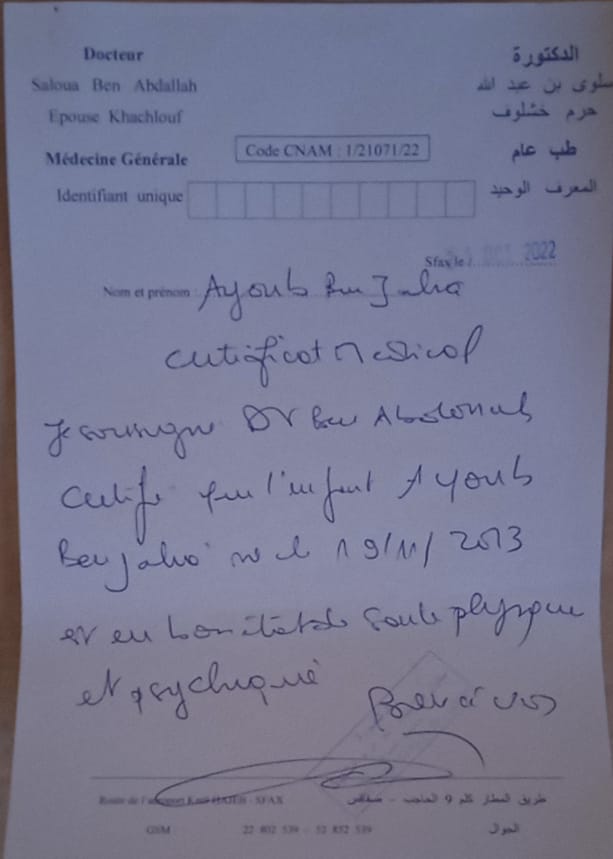 Docteur
الدكتورة
Saloua Ben Abdallah
سلوى بن عبد الله
Epouse Khachlouf
حرم خشلوف
Médecine Générale
Code CNAM : 1/21071/22
طب عام
Identifiant unique
المعرف الوحيد
Sfax le : OCT 2022
Nom et prénom : Ayoub Ben
Certificat Médical
Je soussigné Dr Ben Abdallah
Certifie que l'enfant Ayoub
Ben né le 19/11/2013
est en bon état de santé physique
et psychique
Route de l'aéroport - SFAX
طريق المطار كلم 9 الحاجب - صفاقس
GSM 22 802 539 - 52 852 539 الجوال